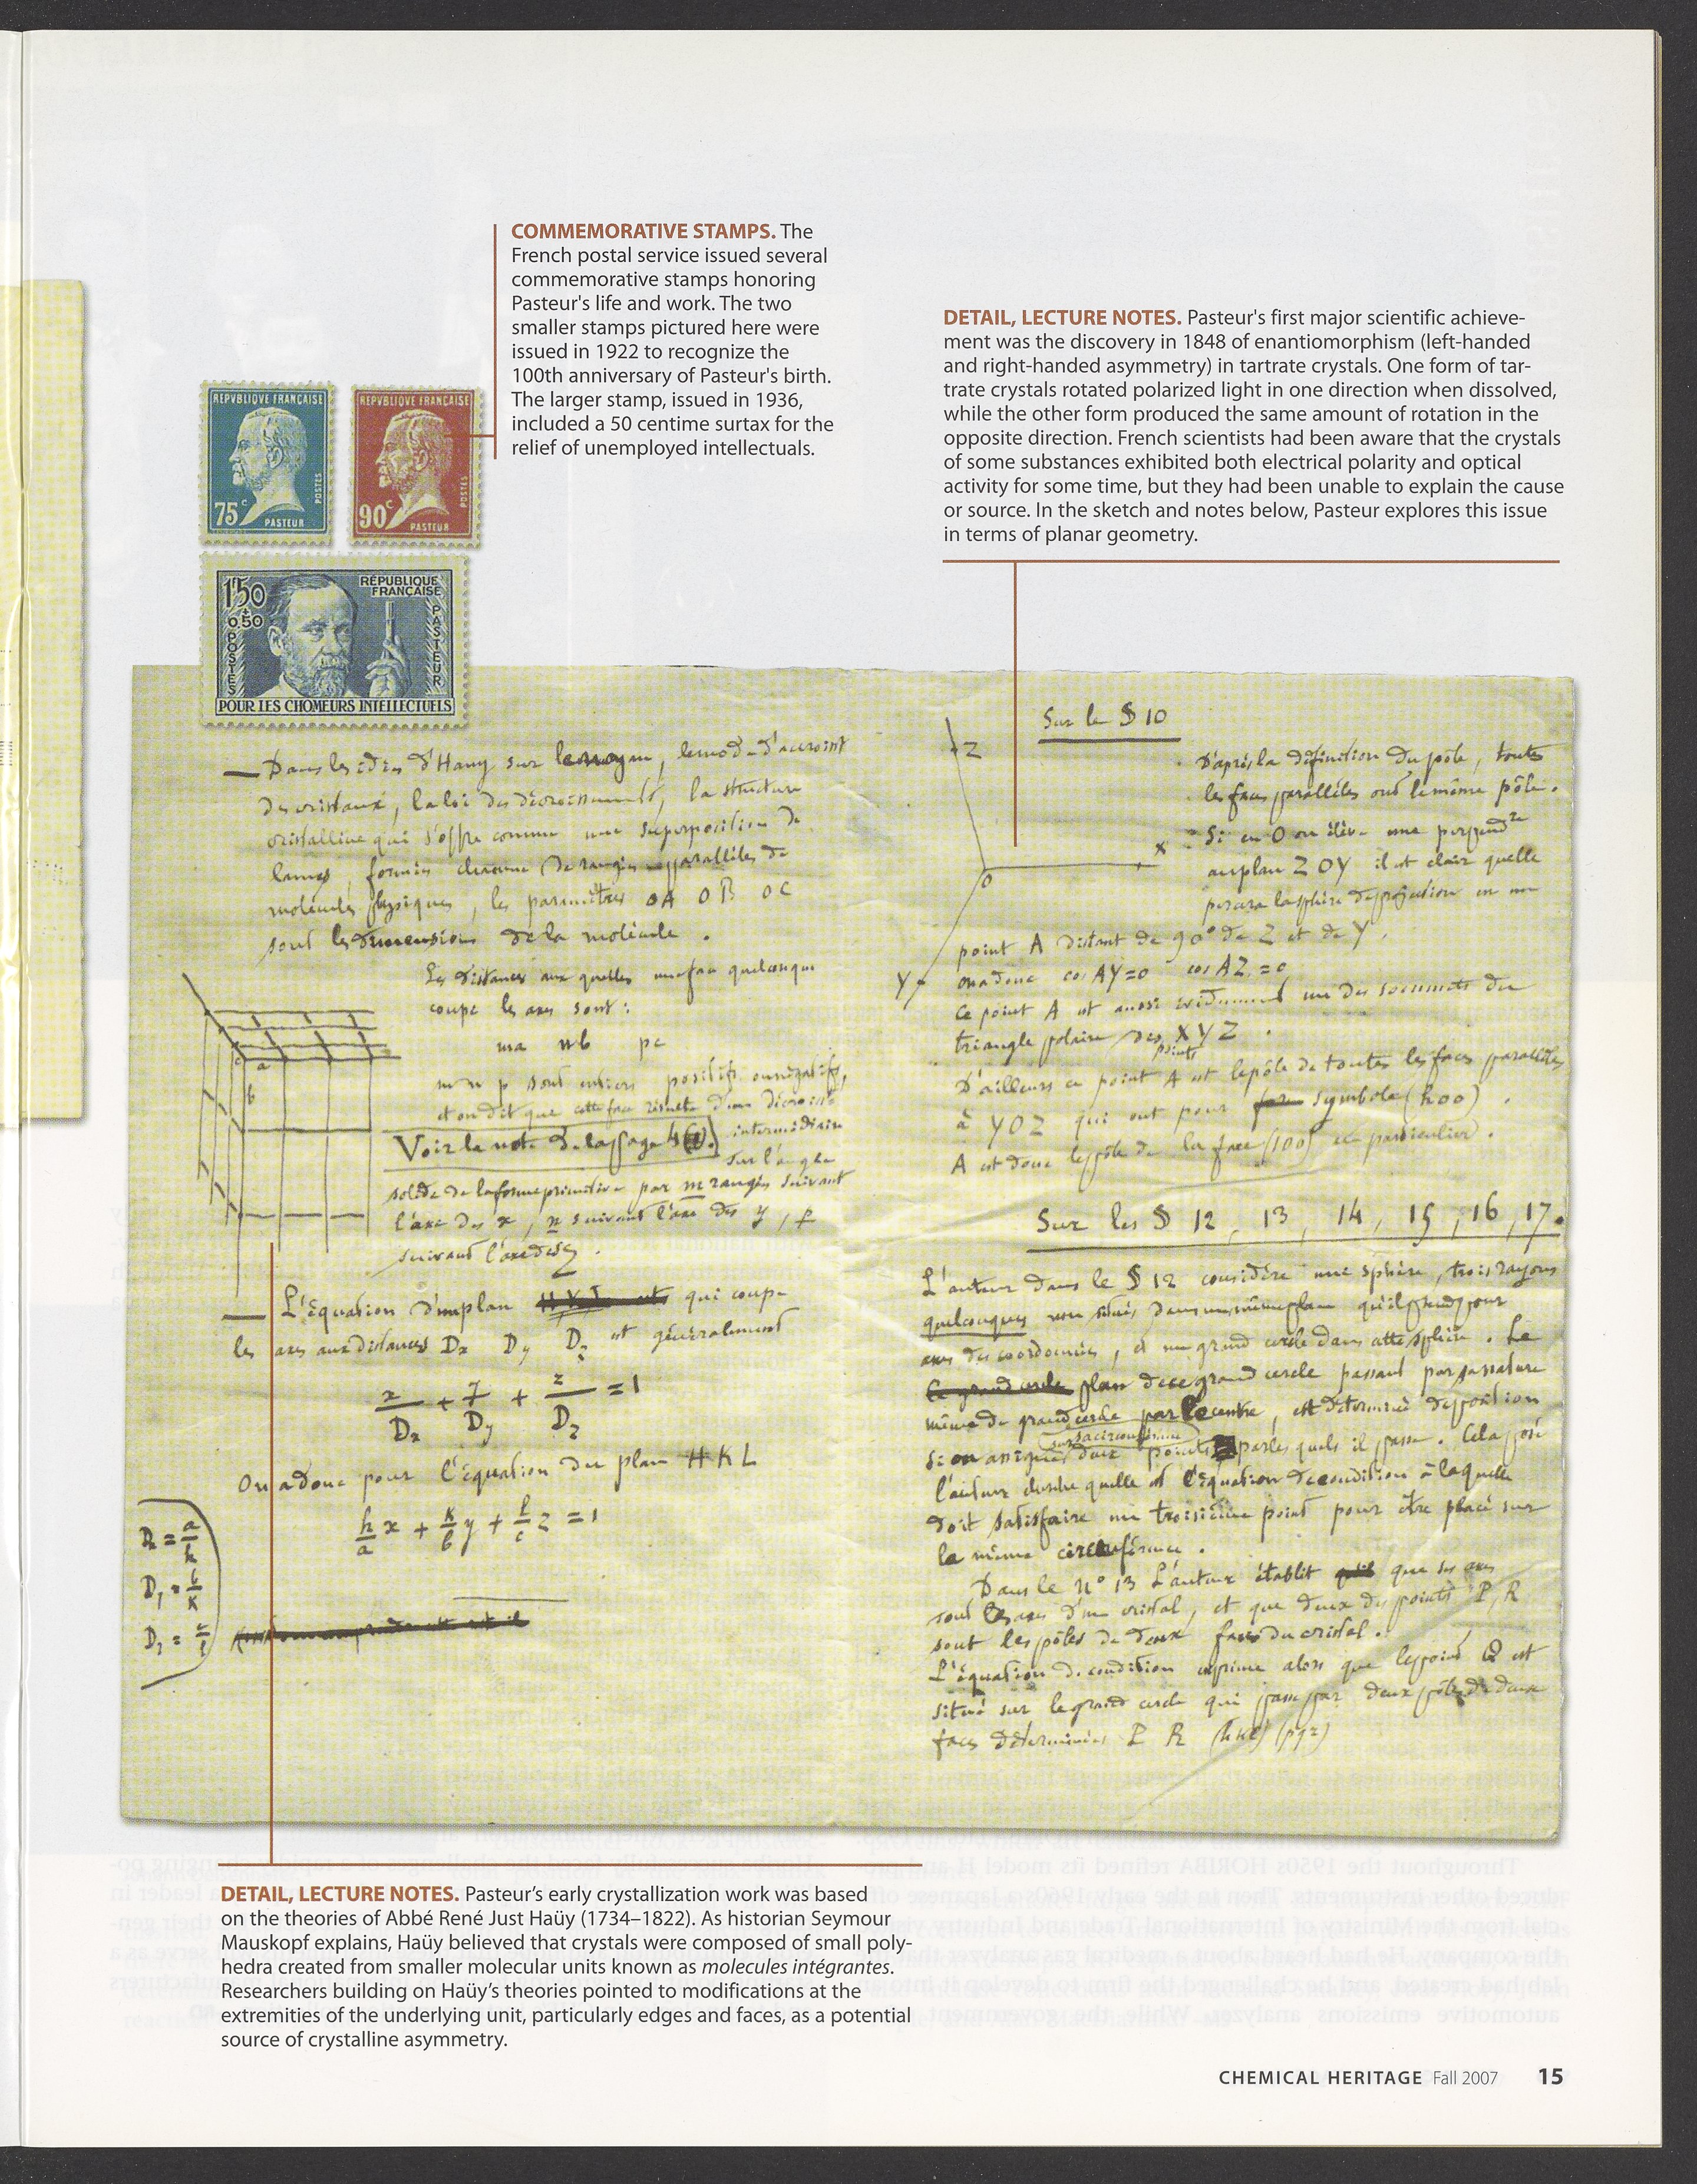 COMMEMORATIVE STAMPS. The
French postal service issued several
commemorative stamps honoring
Pasteur's life and work. The two
smaller stamps pictured here were
issued in 1922 to recognize the
100th anniversary of Pasteur's birth.
The larger stamp, issued in 1936,
included a 50 centime surtax for the
relief of unemployed intellectuals.
DETAIL, LECTURE NOTES. Pasteur's first major scientific achieve-
ment was the discovery in 1848 of enantiomorphism (left-handed
and right-handed asymmetry) in tartrate crystals. One form of tar-
trate crystals rotated polarized light in one direction when dissolved,
while the other form produced the same amount of rotation in the
opposite direction. French scientists had been aware that the crystals
of some substances exhibited both electrical polarity and optical
activity for some time, but they had been unable to explain the cause
or source. In the sketch and notes below, Pasteur explores this issue
in terms of planar geometry.
REPVBLIQVE FRANÇAISE
POSTES
75c
PASTEUR
REPVBLIQVE FRANÇAISE
POSTES
90c
PASTEUR
1f50
+
0.50
POSTES
RÉPUBLIQUE
FRANÇAISE
PASTEUR
POUR LES CHOMEURS INTELLECTUELS
— Dans les idées d'Hauy sur le noyau, le mode d'accroist
des cristaux, la loi des décroissements, la structure
cristalline qui s'offre comme une superposition de
lames, formées chacune de rangées parallèles de
molécules physiques, les paramètres OA OB OC
sont les dimensions de la molécule.
Les distances aux quelles une face quelconque
coupe les axes sont :
ma nb pc
m n p sont entiers positifs ou négatifs,
et on dit que cette face résulte d'un décroist
Voir la note de la page 4 intermédiaire
sur l'angle
solide de la forme primitive par m rangées suivant
l'axe des x, n suivant l'axe des y, p
suivant l'axe des z.
a
b
— L'équation d'un plan qui coupe
les axes aux distances Dx Dy Dz est généralement
x/Dx + y/Dy + z/Dz = 1
On a donc pour l'équation du plan HKL
h/a x + k/b y + l/c z = 1
Dx = a/h
Dy = b/k
Dz = c/l
Sur le § 10
Z
X
O
Y
D'après la définition du pôle, toutes
les faces parallèles ont le même pôle.
Si en O on élève une perpend
au plan ZOY il est clair qu'elle
percera la sphère de projection en un
point A distant de 90° de Z et de Y,
on a donc cos AY=0 cos AZ=0
ce point A est aussi évidemment un des sommets du
triangle polaire des points XYZ.
D'ailleurs ce point A est le pôle de toutes les faces parallèles
à YOZ qui ont pour symbole (h00).
A est donc le pôle de la face (100) en particulier.
Sur les § 12, 13, 14, 15, 16, 17.
L'auteur dans le § 12 considère une sphère, trois rayons
quelconques non situés dans un même plan qu'il prend pour
axes des coordonnées, et un grand cercle dans cette sphère. Le
plan de ce grand cercle passant par sa nature
même de grand cercle par le centre, est déterminé de position
si on assigne sur sa circonférence deux points par les quels il passe. Cela posé
l'auteur cherche quelle est l'équation de condition à laquelle
doit satisfaire un troisième point pour être placé sur
la même circonférence.
Dans le n° 13 L'auteur établit que ses axes
sont les axes d'un cristal, et que deux des points P, R
sont les pôles de deux faces du cristal.
L'équation de condition exprime alors que le point Q est
situé sur le grand cercle qui passe par deux pôles de deux
faces déterminées P R (hkl) (pqr)
DETAIL, LECTURE NOTES. Pasteur’s early crystallization work was based
on the theories of Abbé René Just Haüy (1734–1822). As historian Seymour
Mauskopf explains, Haüy believed that crystals were composed of small poly-
hedra created from smaller molecular units known as molecules intégrantes.
Researchers building on Haüy’s theories pointed to modifications at the
extremities of the underlying unit, particularly edges and faces, as a potential
source of crystalline asymmetry.
CHEMICAL HERITAGE Fall 2007 15